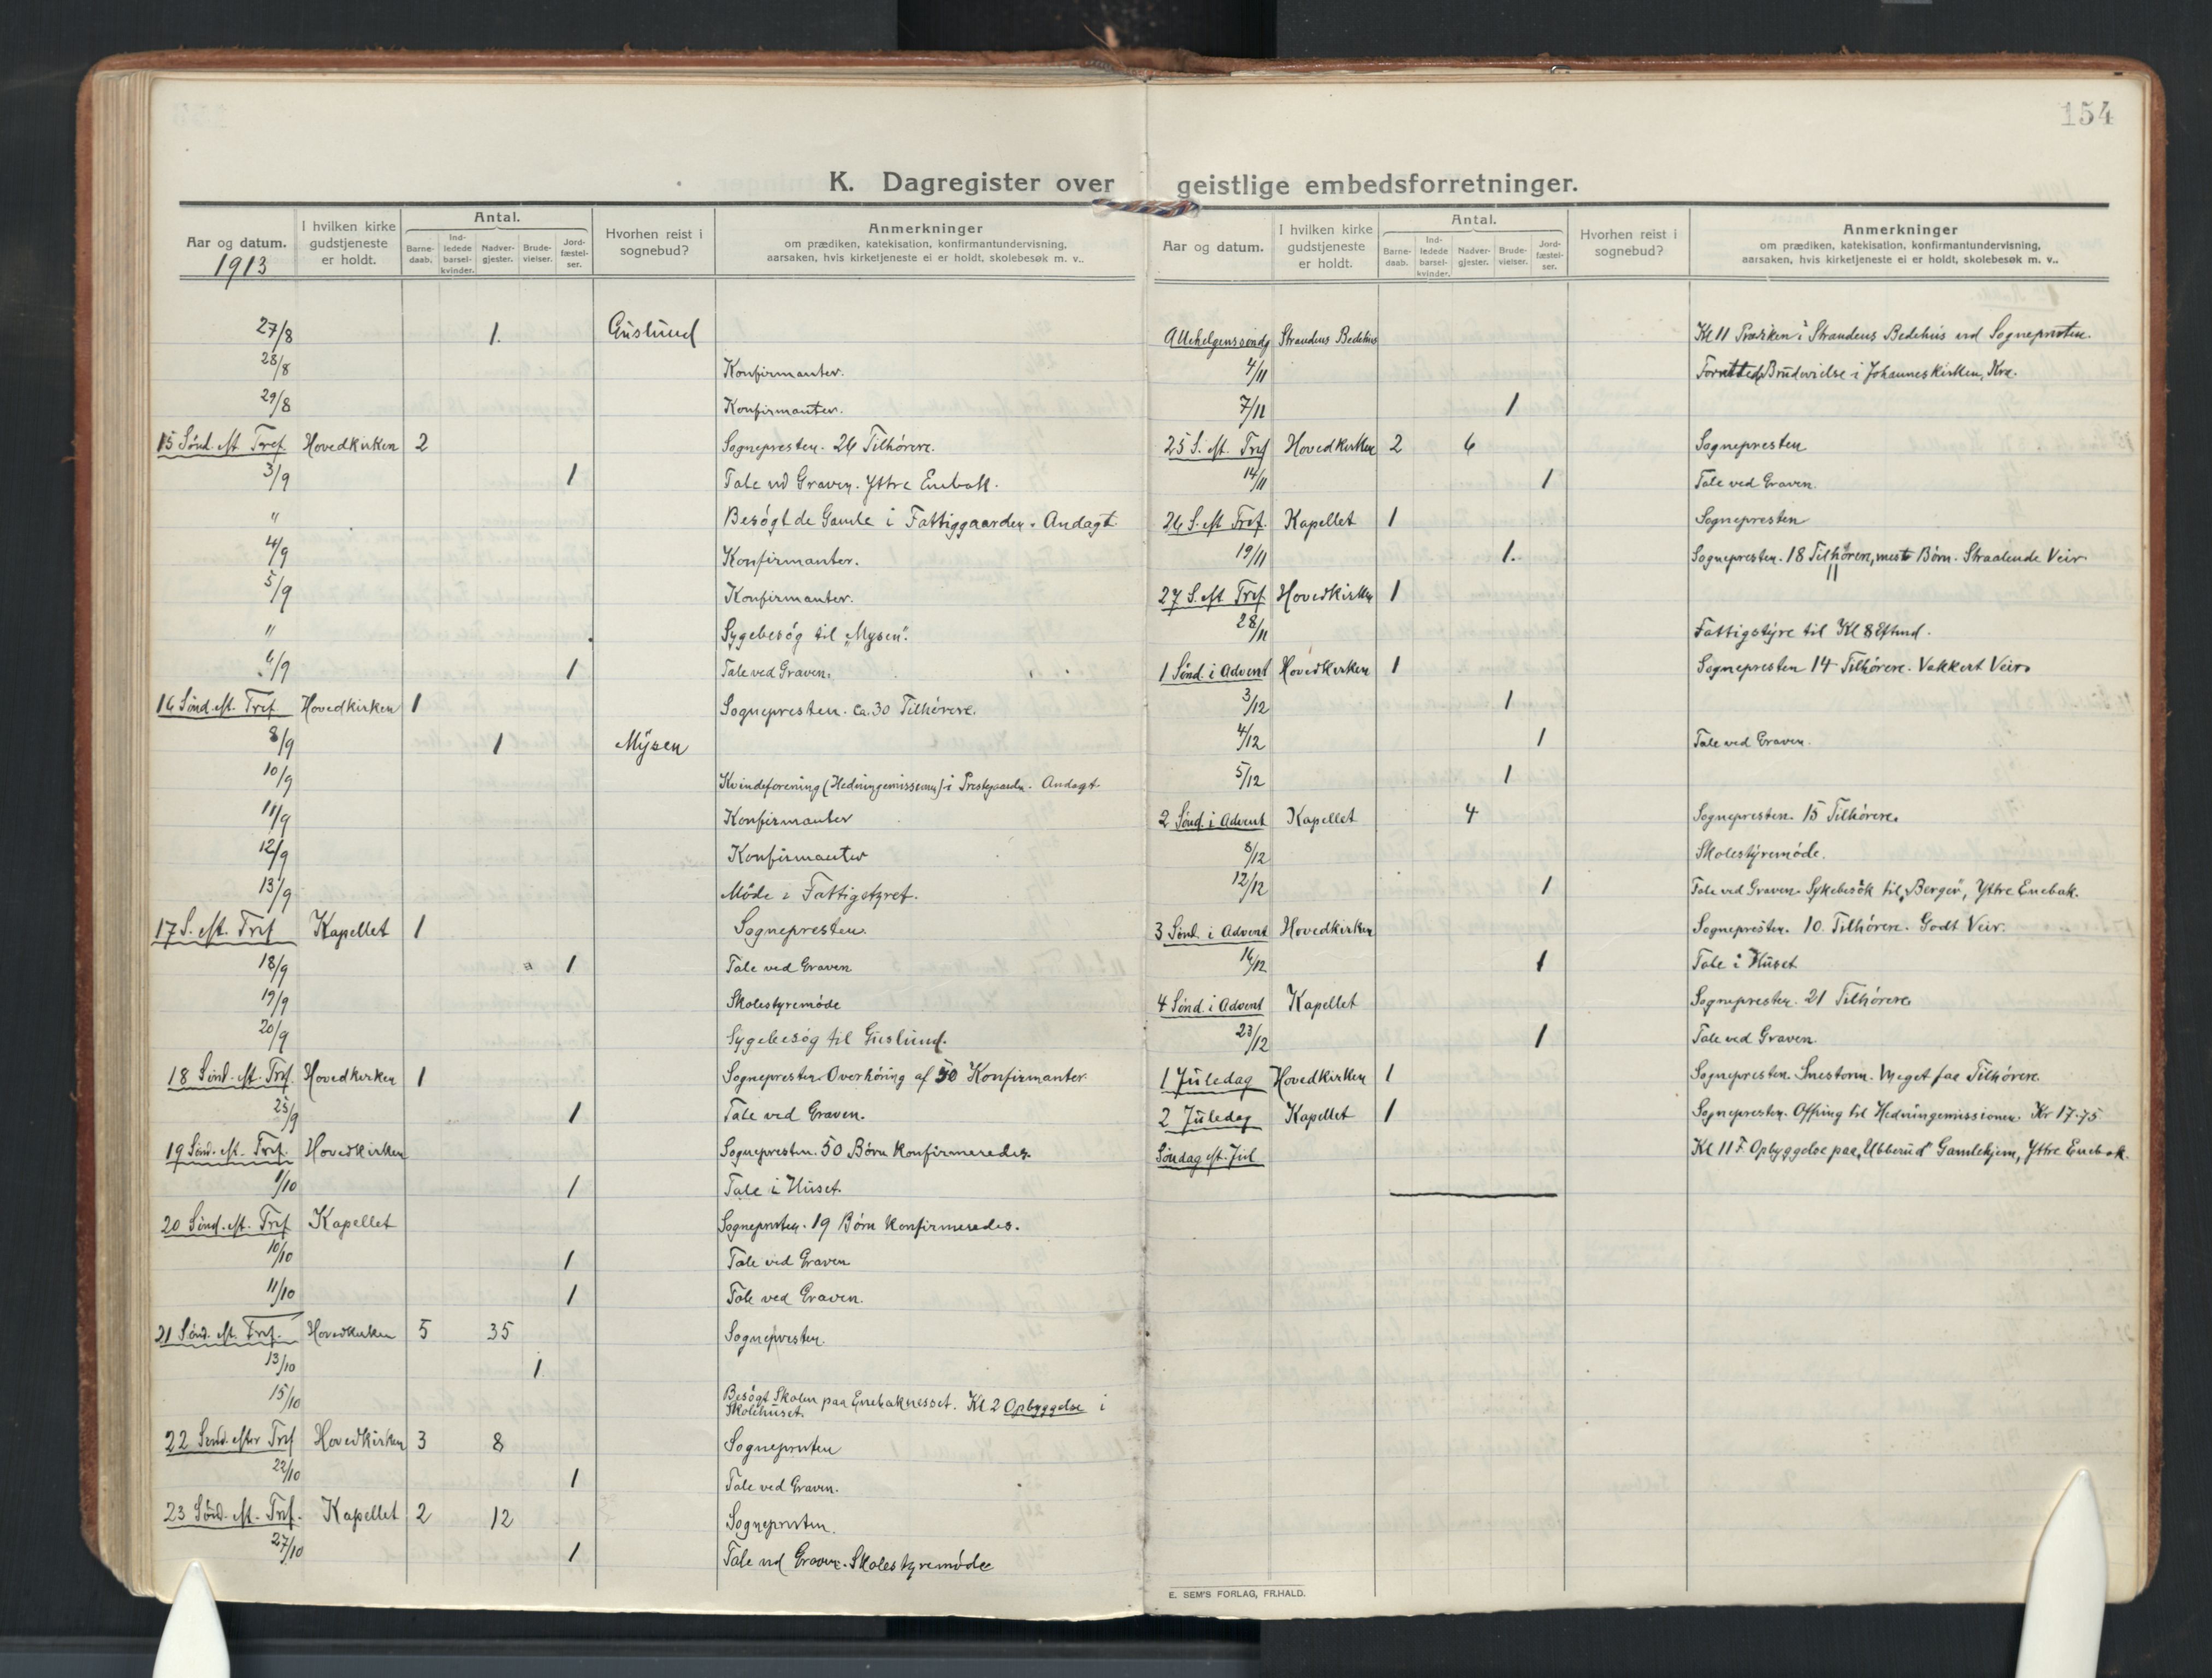 154
K. Dagregister over geistlige embedsforretninger.
Aar og datum.
1913
I hvilken kirke gudstjeneste er holdt.
Antal.
Barne-daab.
Ind-ledede barsel-kvinder.
Nadver-gjester.
Brude-vielser.
Jord-fæstel-ser.
Hvorhen reist i sognebud?
Anmerkninger
om prædiken, katekisation, konfirmantundervisning,
aarsaken, hvis kirketjeneste ei er holdt, skolebesøk m. v..
27/8 1. Guslund
28/8 Konfirmanter.
29/8 Konfirmanter.
15 Sönd. eft. Tref. Hovedkirken 2 Sognepresten. 26 Tilhörere.
3/9 1 Tale ved Graven. Yttre Enebak.
" Besögt de Gamle i Fattiggaarden. Andagt.
4/9 Konfirmanter.
5/9 Konfirmanter.
" Sygebesög til "Mysen".
6/9 1 Tale ved Graven.
16 Sönd. eft. Tref. Hovedkirken 1 Sognepresten. ca. 30 Tilhörere.
8/9 1 Mysen
10/9 Kvindeforening (Hedningemissionen) i Prestegaarden. Andagt.
11/9 Konfirmanter
12/9 Konfirmanter
13/9 Möde i Fattigstyret.
17 S. eft. Tref Kapellet 1 Sognepresten.
18/9 1 Tale ved Graven
19/9 Skolestyremöde
20/9 Sygebesög til Guslund.
18 Sönd. eft. Tref. Hovedkirken 1 Sognepresten. Overhöring af 50 Konfirmanter.
25/9 1 Tale ved Graven.
19 Sönd. eft. Tref. Hovedkirken Sognepresten. 50 Börn konfirmeredes.
1/10 1 Tale i Huset.
20 Sönd. eft. Tref Kapellet Sognepresten. 19 Börn konfirmeredes.
10/10 1 Tale ved Graven
11/10 1 Tale ved Graven.
21 Sönd. eft. Tref. Hovedkirken 5 35 Sognepresten.
13/10 1
15/10 Besögt Skolen paa Enebaknesset. Kl 2 Opbyggelse i
Skolehuset.
22 Sönd. efter Tref Hovedkirken 3 8 Sognepresten
22/10 1 Tale ved Graven.
23 Sönd. eft. Tref. Kapellet 2 12 Sognepresten.
27/10 1 Tale ved Graven. Skolestyremöde
Aar og datum.
I hvilken kirke gudstjeneste er holdt.
Antal.
Barne-daab.
Ind-ledede barsel-kvinder.
Nadver-gjester.
Brude-vielser.
Jord-fæstel-ser.
Hvorhen reist i sognebud?
Anmerkninger
om prædiken, katekisation, konfirmantundervisning,
aarsaken, hvis kirketjeneste ei er holdt, skolebesøk m. v..
Allehelgenssöndg Strandens Bedehus Kl 11 Præken i Strandens Bedehus ved Sognepresten.
4/11 Forrettede Brudevielse i Johanneskirken, Kra.
7/11 1
25 S. eft. Tref Hovedkirken 2 6 Sognepresten
14/11 1 Tale ved Graven.
26 S. eft Tref. Kapellet 1 Sognepresten
19/11 1. Sognepresten. 18 Tilhörere, mest Börn. Straalende Veir
27 S. eft Tref Hovedkirken 1 "
28/11 Fattigstyre til Kl 8 Eftmd.
1 Sönd. i Advent Hovedkirken 1 Sognepresten 14 Tilhörere. Vakkert Veir.
3/12 1
4/12 1 Tale ved Graven.
5/12 1
2 Sönd. i Advent Kapellet 4 Sognepresten. 15 Tilhörere.
8/12 Skolestyremöde.
12/12 1 Tale ved Graven. Sykebesök til "Berger", Yttre Enebak.
3 Sönd. i Advent Hovedkirken Sognepresten. 10. Tilhörere. Godt Veir.
16/12 1 Tale i Huset
4 Sönd. i Advent Kapellet Sognepresten. 21 Tilhörere.
23/12 1 Tale ved Graven.
1 Juledag Hovedkirken 1 Sognepresten. Snestorm. Meget faa Tilhörere.
2 Juledag Kapellet 1 Sognepresten. Offring til Hedningemissionen. Kr 17.75
Söndag eft. Jul Kl 11 F. Opbyggelse paa "Ubberud" Gamlehjem, Yttre Enebak.
E. SEM'S FORLAG, FR.HALD.